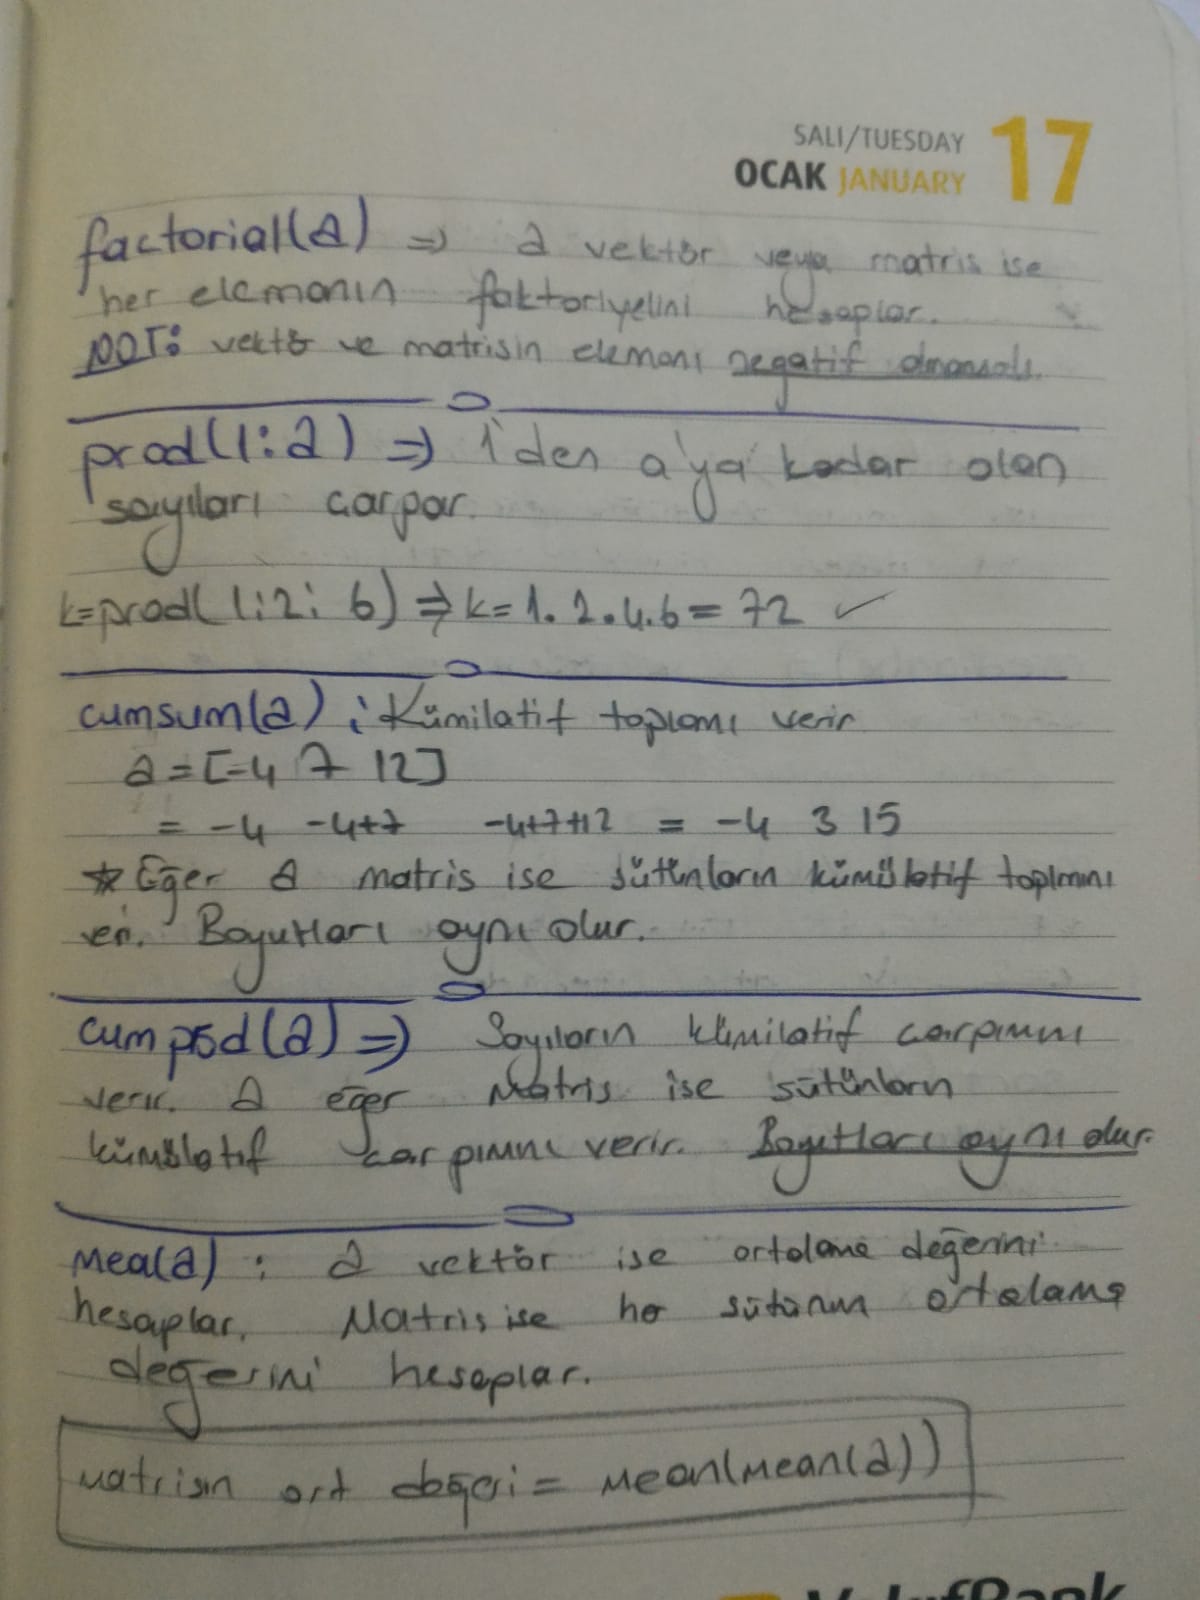 SALI/TUESDAY
OCAK JANUARY 17
factorial(a) => a vektör veya matris ise
her elemanın faktoriyelini hesaplar.
NOT: vektö ve matrisin elemanı negatif olmamalı.
prod(1:a) => 1'den a'ya kadar olan
sayıları çarpar.
k=prod(1:2:6) => k= 1.2.4.6= 72 ✓
cumsum(a) ; Kümilatif toplamı verir
a = [-4 7 12]
= -4 -4+7 -4+7+12 = -4 3 15
* Eğer a matris ise sütünların kümülatif toplmını
ver. Boyutları aynı olur.
cumprod(a) => Sayıların kümilatif çarpımını
verir. a eğer Matris ise sütünların
kümülatif çarpımını verir. Boyutları aynı olur.
Mea(a) : a vektör ise ortalama değerini
hesaplar. Matris ise her sütunun ortalama
değerini hesaplar.
Matrisin ort değeri = Mean(Mean(a))
VakıfBank